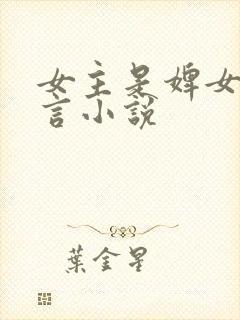 女主是婢女
言小說
葉金星